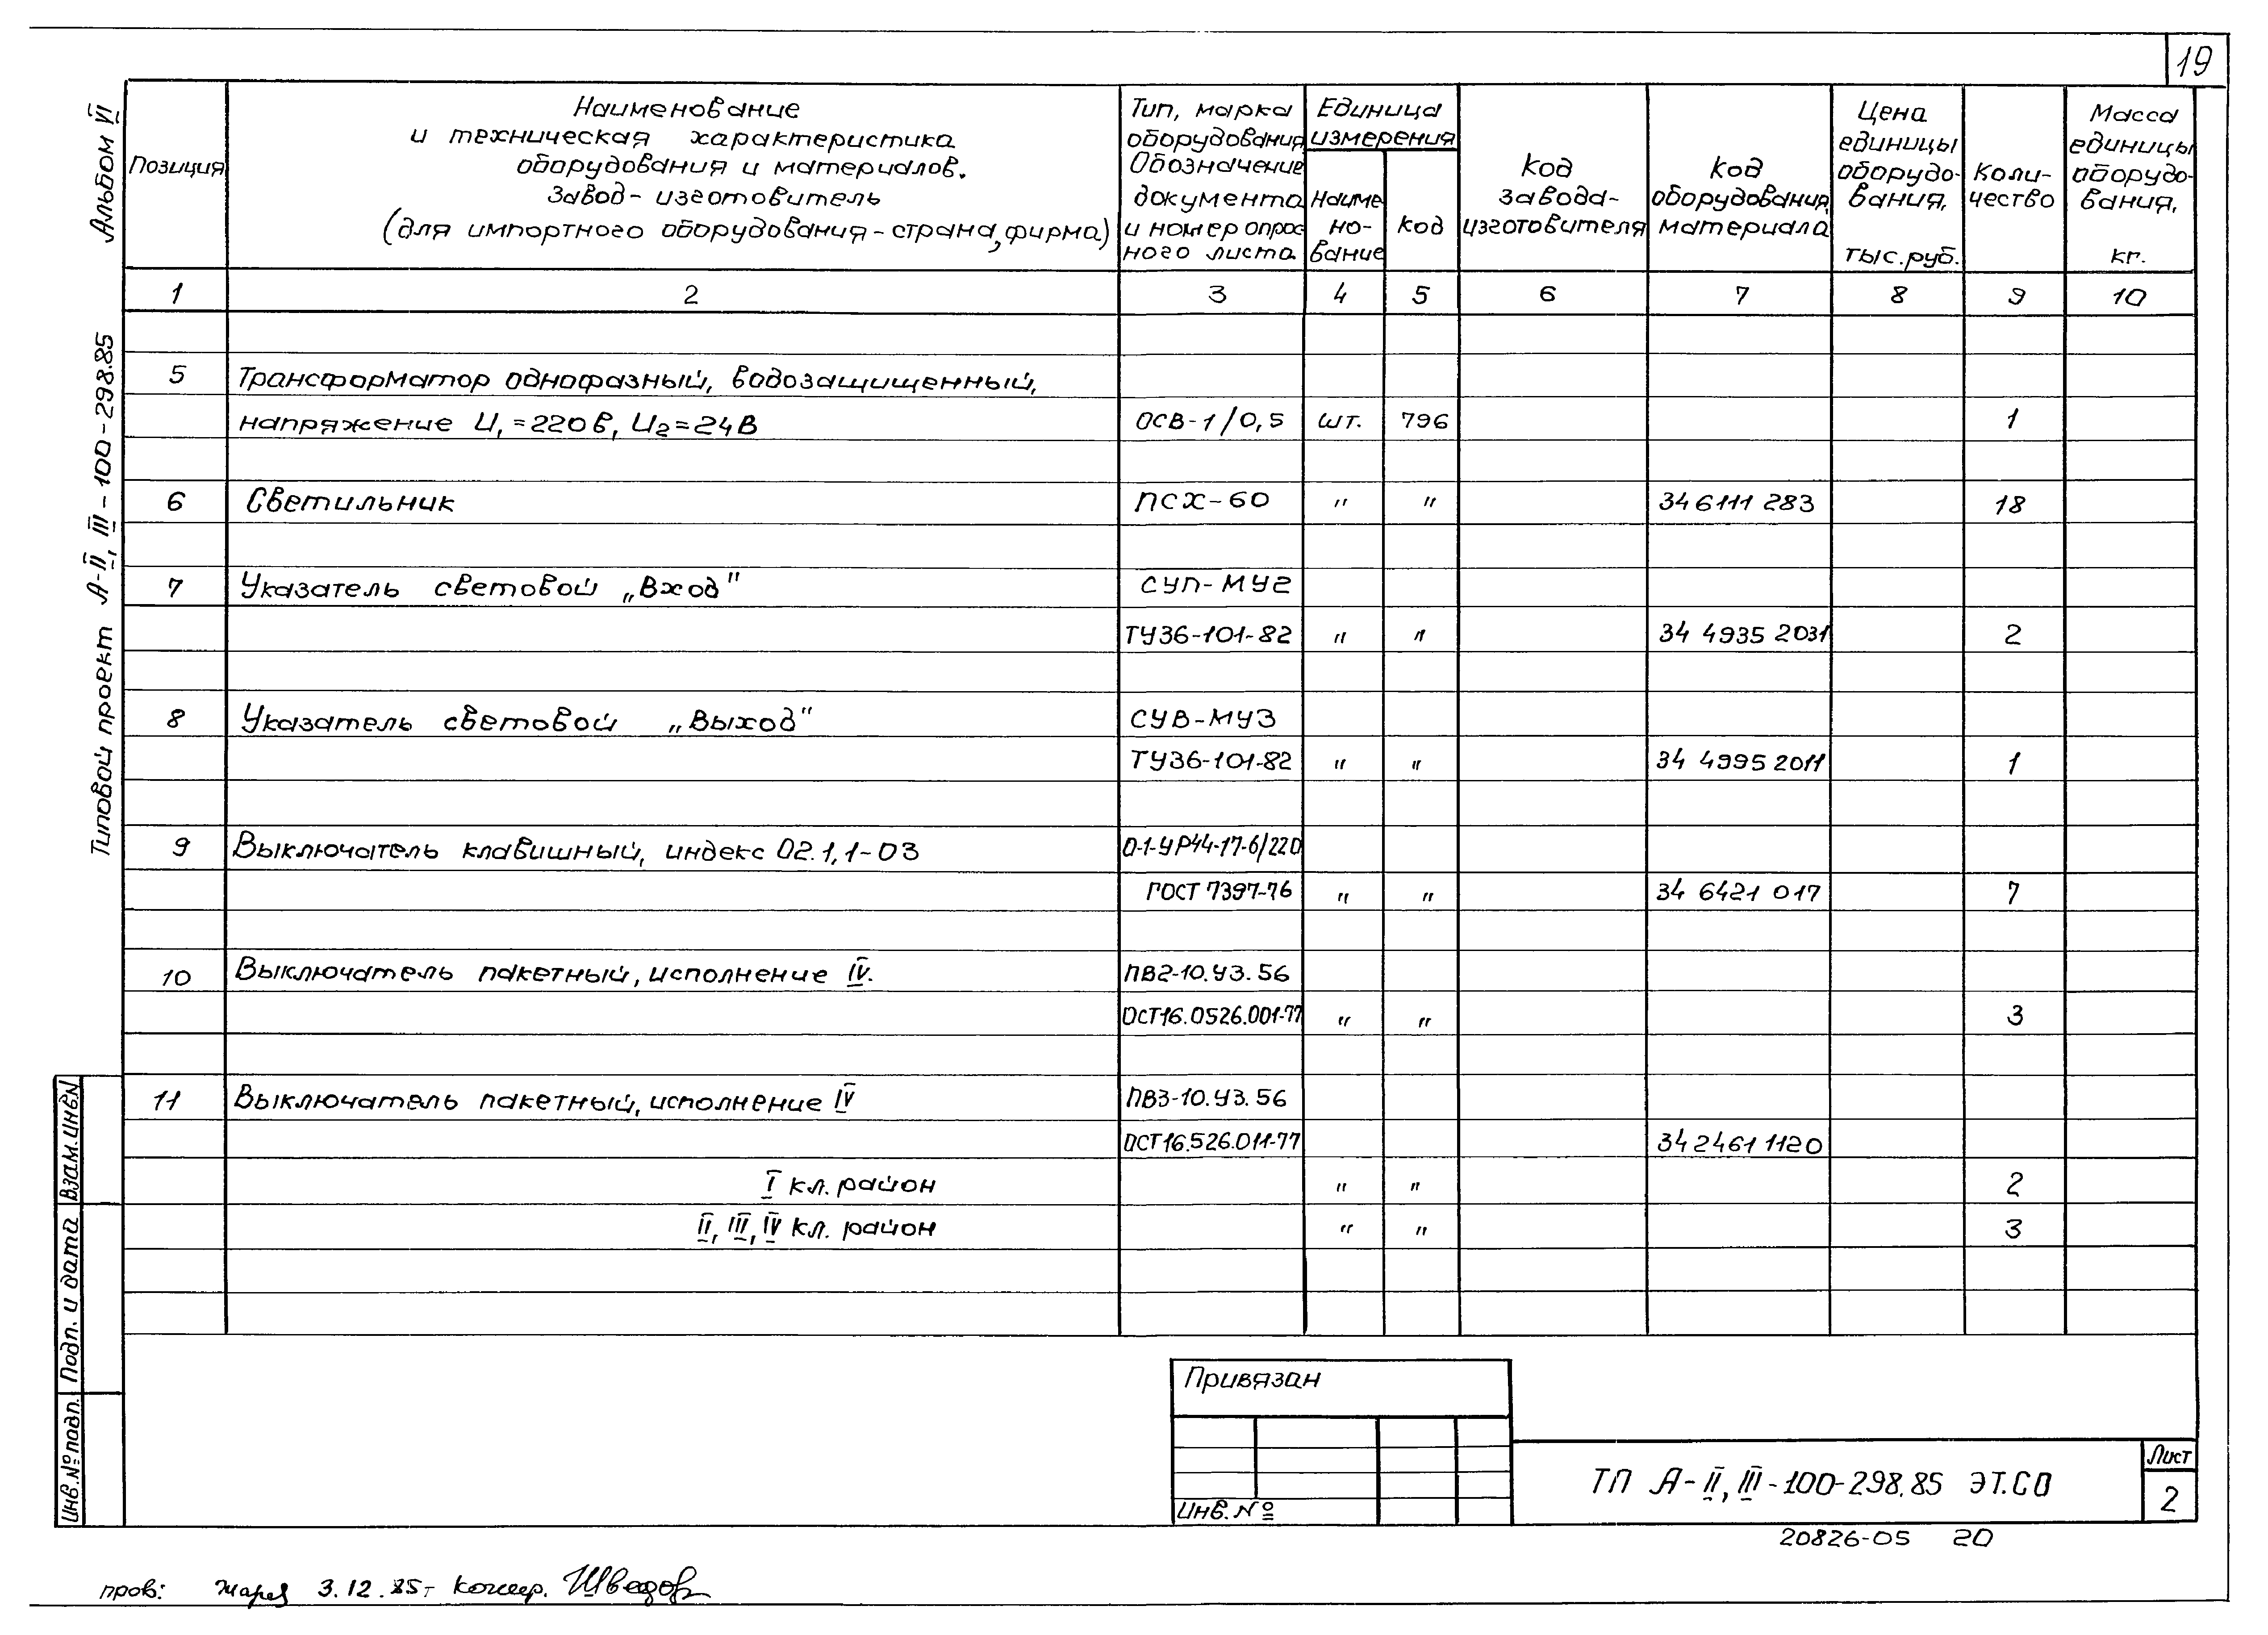 19
Альбом VI
Типовой проект А-II, III-100-298.85
Позиция
Наименование
и техническая характеристика
оборудования и материалов.
Завод-изготовитель
(для импортного оборудования-страна, фирма)
Тип, марка
оборудования
Обозначение
документа
и номер опрос
ного листа
Единица
измерения
Наиме
но-
вание
код
Код
завода-
изготовителя
Код
оборудования,
материала
Цена
единицы
оборудо-
вания,
тыс.руб.
Коли-
чество
Масса
единицы
оборудо-
вания,
кг.
1 2 3 4 5 6 7 8 9 10
5 Трансформатор однофазный, водозащищенный,
напряжение U₁=220В, U₂=24В ОСВ-1/0,5 шт. 796 1
6 Светильник ПСХ-60 " " 34 6111 283 18
7 Указатель световой „Вход" СУП-МУ2
ТУ36-101-82 " " 34 4935 2031 2
8 Указатель световой „Выход" СУВ-МУ3
ТУ36-101-82 " " 34 4995 2011 1
9 Выключатель клавишный, индекс 02.1,1-03 О-1-УР44-17-6/220
ГОСТ 7397-76 " " 34 6421 017 7
10 Выключатель пакетный, исполнение IV. ПВ2-10.У3.56
ОСТ16.0526.001-77 " " 3
11 Выключатель пакетный, исполнение IV ПВ3-10.У3.56
ОСТ16.526.011-77 34 2461 1120
I кл. район " " 2
II, III, IV кл. район " " 3
Взам. инв.N
Подп. и дата
Инв.№ подп.
Привязан
Инв. №
ТП А-II, III-100-298.85 ЭТ.СО
Лист
2
20826-05 20
пров: 3.12.85г